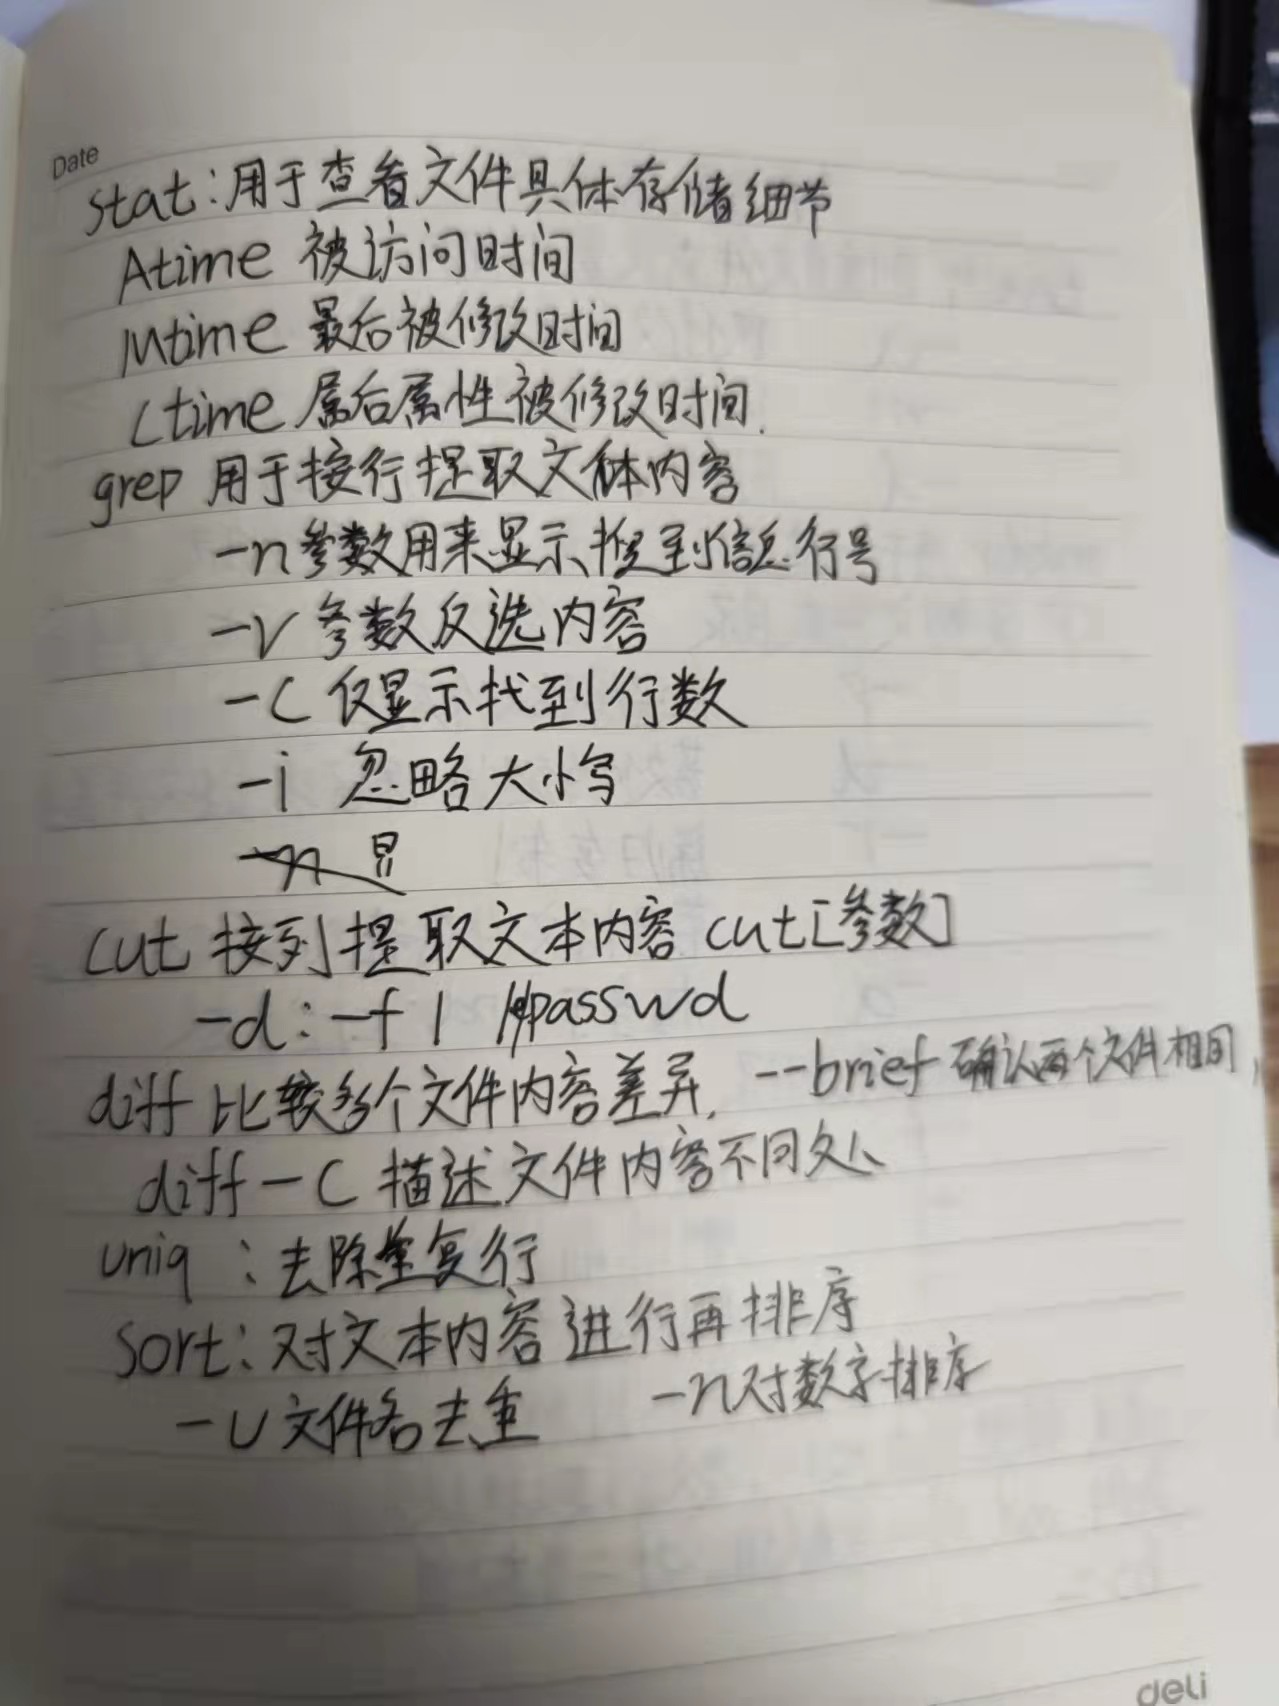 Date
stat:用于查看文件具体存储细节
Atime 被访问时间
Mtime 最后被修改时间
Ctime 属后属性被修改时间.
grep 用于按行提取文体内容
-n参数用来显示搜到信息行号
-v 参数反选内容
-c 仅显示找到行数
-i 忽略大小写
cut 按列提取文本内容 cut[参数]
-d:-f 1 passwd
diff 比较多个文件内容差异. --brief 确认两个文件相同,
diff -c 描述文件内容不同处
uniq :去除重复行
sort:对文本内容进行再排序
-u 文件名去重 -n对数字排序
deli